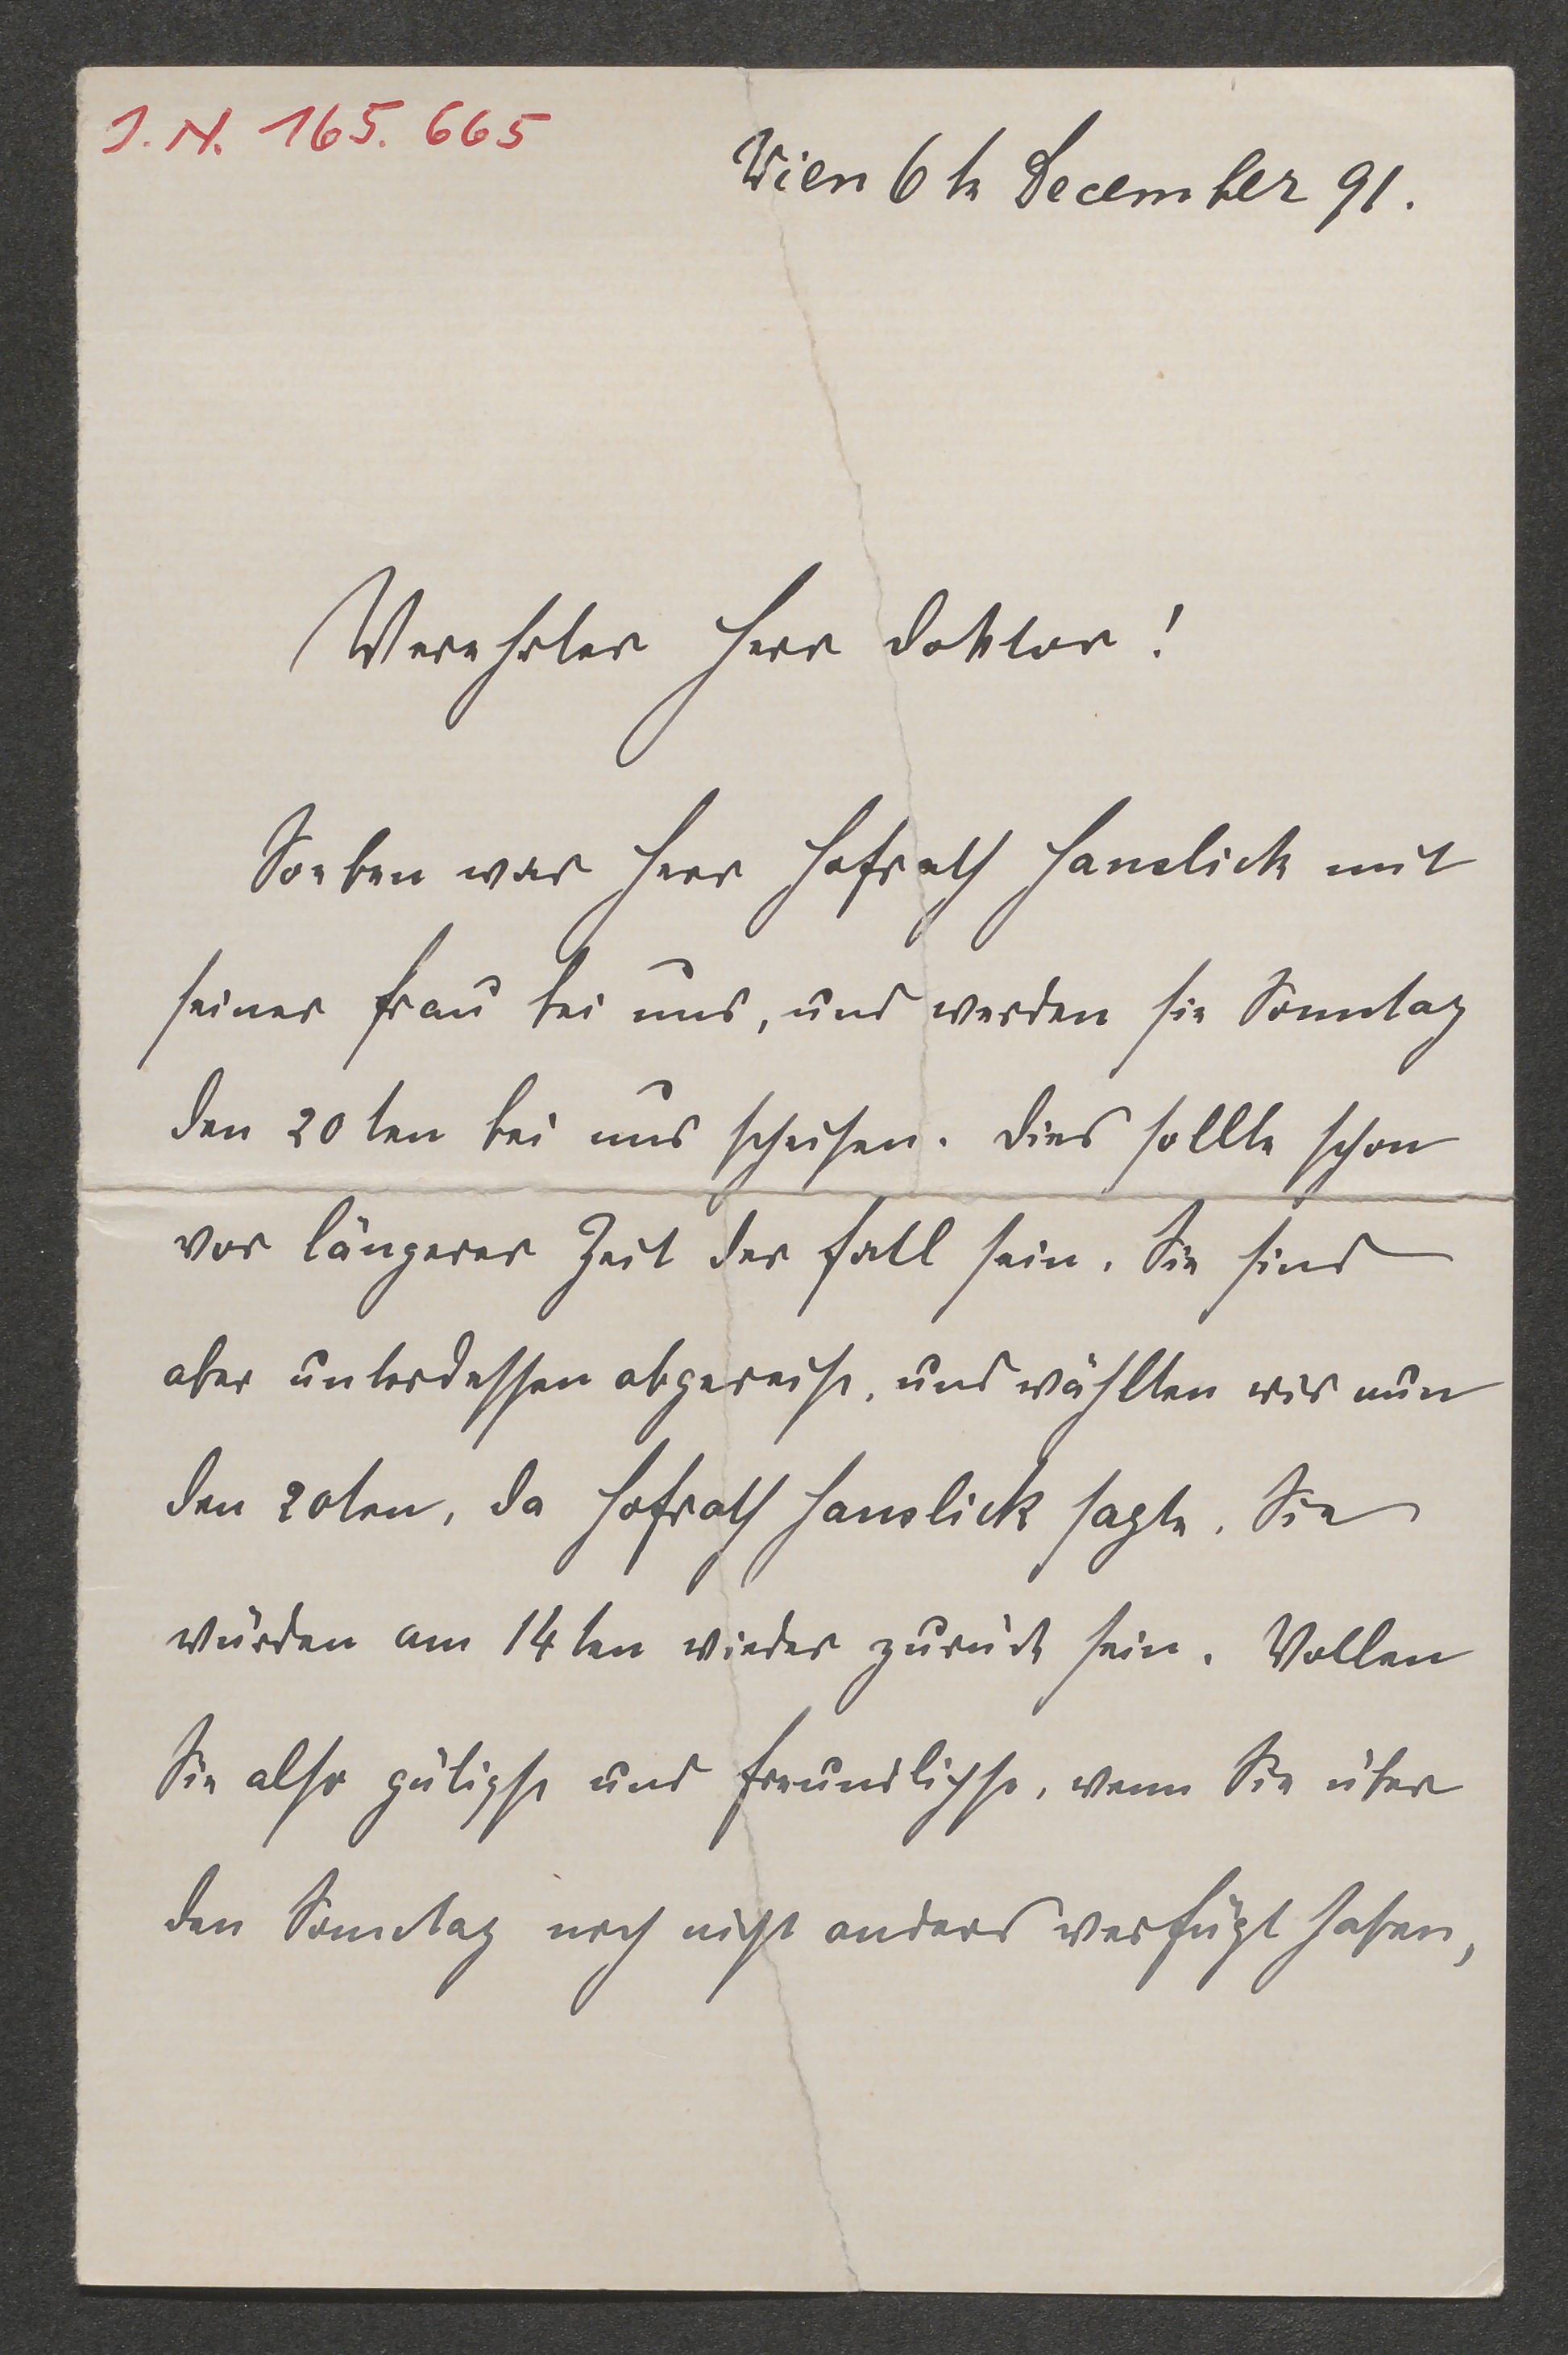 I.N. 165.665
Wien 6te December 91.
Verehrter Herr Doktor!
Soeben war Herr Hofrath Hanslick mit
seiner Frau bei uns, und werden sie Sonntag
den 20ten bei uns speisen. Dies sollte schon
vor längerer Zeit der Fall sein. Sie sind
aber unterdessen abgereist, und wählten wir nun
den 20ten, da Hofrath Hanslick sagte, Sie
würden am 14ten wieder zurück sein. Wollen
Sie also gütigst und freundlichst, wenn Sie über
den Sonntag noch nicht anders verfügt haben,